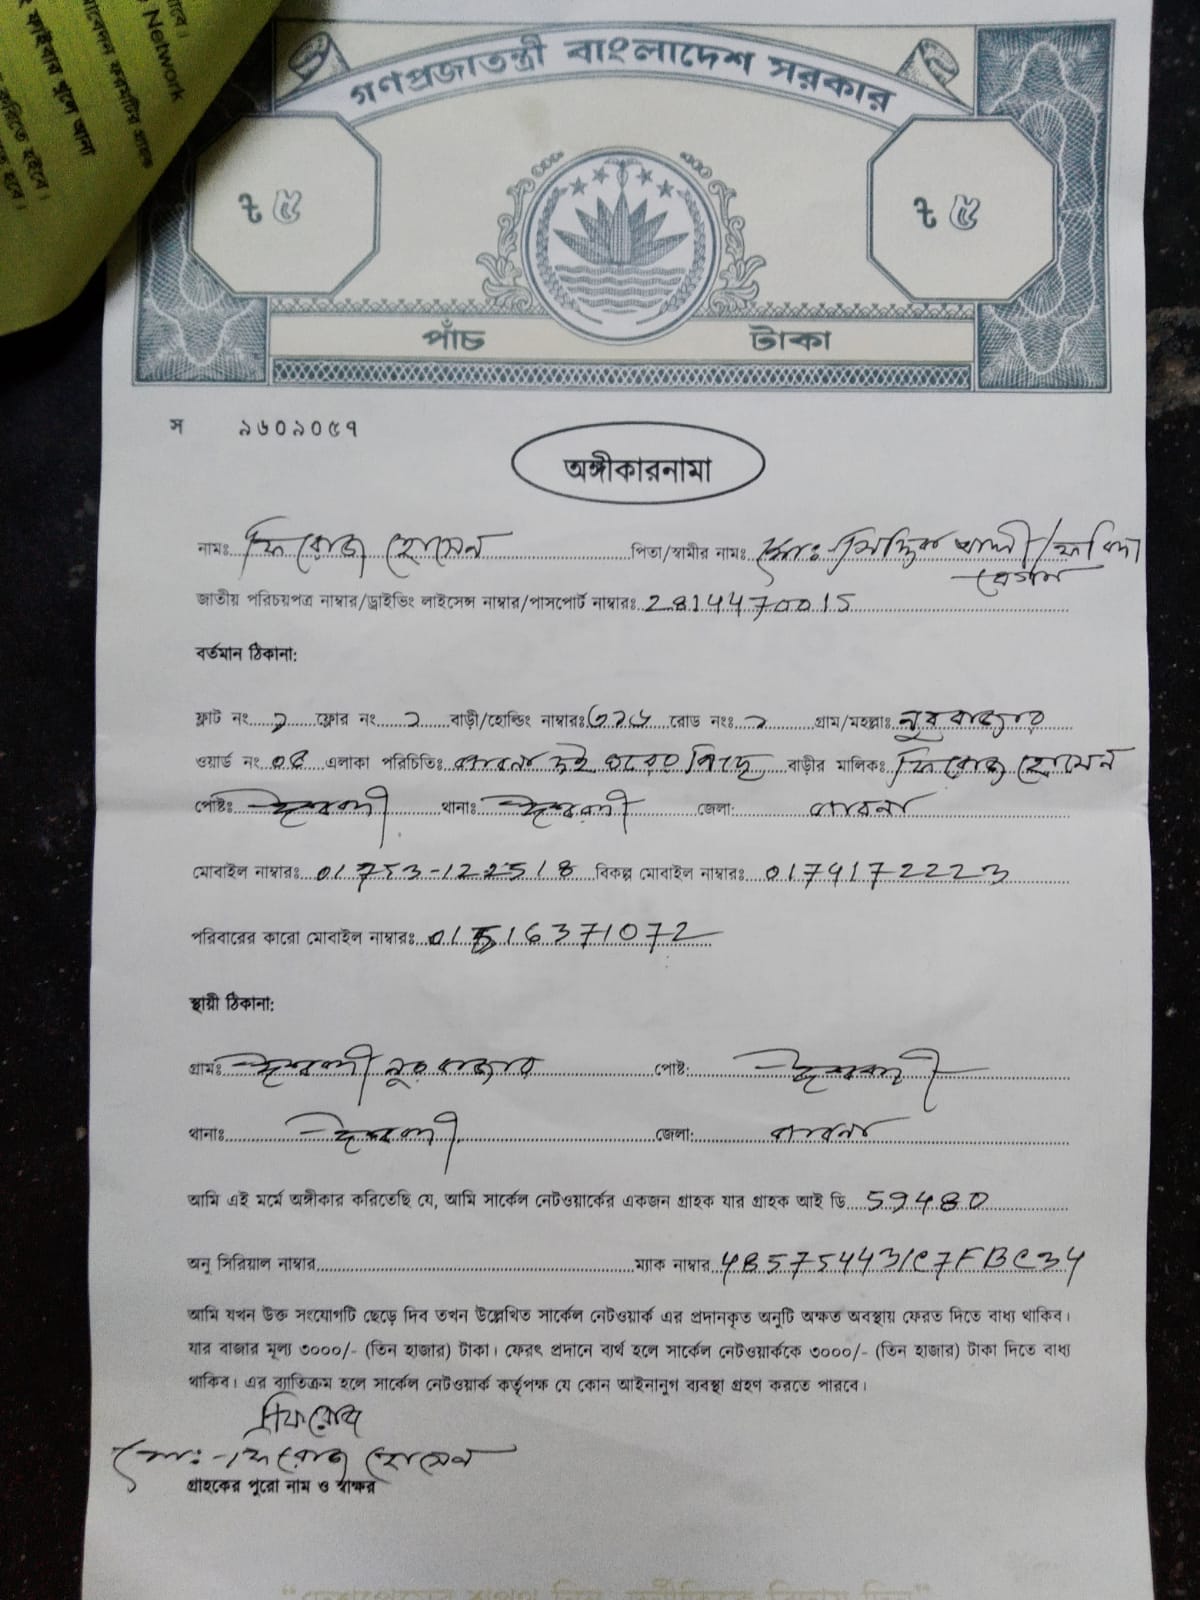 গণপ্রজাতন্ত্রী বাংলাদেশ সরকার
৳ ৫ ৳ ৫
পাঁচ টাকা
স ৯৬০৯০৫৭
অঙ্গীকারনামা
নামঃ ফিরোজ হোসেন পিতা/স্বামীর নামঃ মোঃ সিদ্দিক আলী/ফরিদা
বেগম
জাতীয় পরিচয়পত্র নাম্বার/ড্রাইভিং লাইসেন্স নাম্বার/পাসপোর্ট নাম্বারঃ 2814470015
বর্তমান ঠিকানা:
ফ্লাট নং ১ ফ্লোর নং ১ বাড়ী/হোল্ডিং নাম্বারঃ রোড নংঃ ১ গ্রাম/মহল্লাঃ নুরবাজার
ওয়ার্ড নং ০৫ এলাকা পরিচিতিঃ পাবনা দই ঘরের পিছে বাড়ীর মালিকঃ ফিরোজ হোসেন
পোষ্টঃ ঈশ্বরদী থানাঃ ঈশ্বরদী জেলা: পাবনা
মোবাইল নাম্বারঃ 01753-122518 বিকল্প মোবাইল নাম্বারঃ 01741722223
পরিবারের কারো মোবাইল নাম্বারঃ
স্থায়ী ঠিকানা:
গ্রামঃ ঈশ্বরদী নুরবাজার পোষ্ট: ঈশ্বরদী
থানাঃ ঈশ্বরদী জেলা: পাবনা
আমি এই মর্মে অঙ্গীকার করিতেছি যে, আমি সার্কেল নেটওয়ার্কের একজন গ্রাহক যার গ্রাহক আই ডি 59480
অনু সিরিয়াল নাম্বার ম্যাক নাম্বার 485754431C7FBC34
আমি যখন উক্ত সংযোগটি ছেড়ে দিব তখন উল্লেখিত সার্কেল নেটওয়ার্ক এর প্রদানকৃত অনুটি অক্ষত অবস্থায় ফেরত দিতে বাধ্য থাকিব।
যার বাজার মূল্য ৩০০০/- (তিন হাজার) টাকা। ফেরৎ প্রদানে ব্যর্থ হলে সার্কেল নেটওয়ার্ককে ৩০০০/- (তিন হাজার) টাকা দিতে বাধ্য
থাকিব। এর ব্যাতিক্রম হলে সার্কেল নেটওয়ার্ক কর্তৃপক্ষ যে কোন আইনানুগ ব্যবস্থা গ্রহণ করতে পারবে।
ফিরোজ
মোঃ ফিরোজ হোসেন
গ্রাহকের পুরো নাম ও স্বাক্ষর
Network